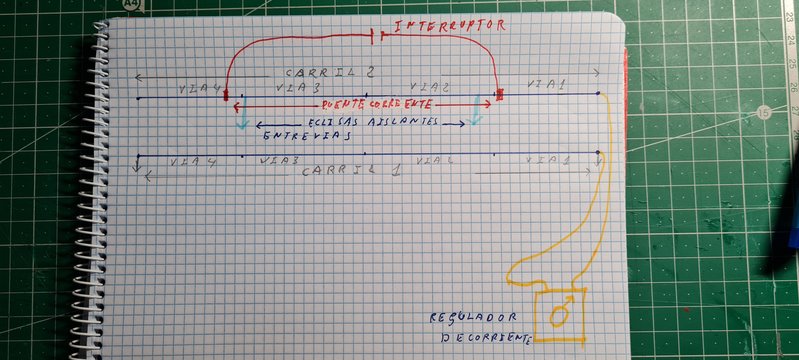 A4
INTERRUPTOR
CARRIL 2
VIA4 VIA3 VIA2 VIA1
PUENTE CORRIENTE
ECLISAS AISLANTES
ENTREVIAS
VIA4 VIA3 VIA2 VIA1
CARRIL 1
REGULADOR
DECORRIENTE
23
22
21
20
19
18
17
16
15